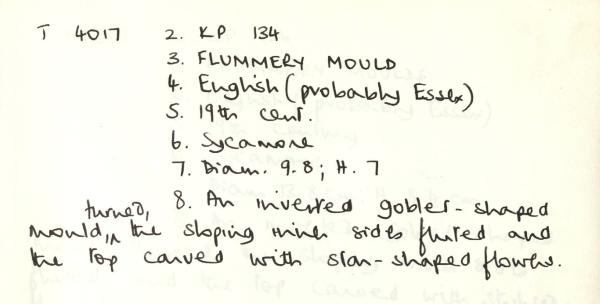 T 4017 2. KP 134
3. FLUMMERY MOULD
4. English (probably Essex)
5. 19th cent.
6. Sycamore
7. Diam. 9.8; H. 7
8. An inverted goblet-shaped
mould, turned, the sloping sides fluted and
the top carved with star-shaped flowers.